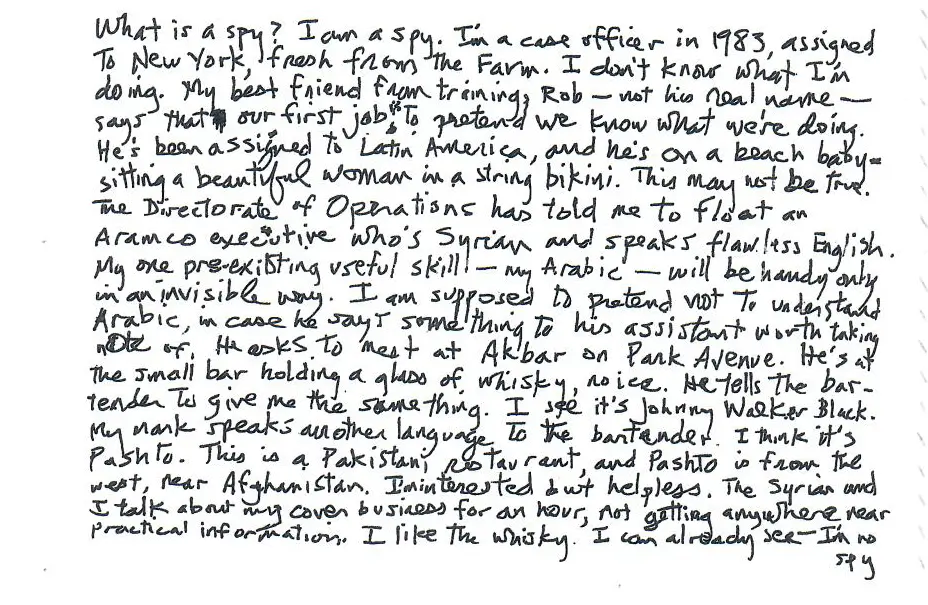 What is a spy? I am a spy. I'm a case officer in 1983, assigned
To New York, fresh from the Farm. I don't know what I'm
doing. My best friend from training, Rob — not his real name —
says that our first job is To pretend we know what we're doing.
He's been assigned to Latin America, and he's on a beach baby-
sitting a beautiful woman in a string bikini. This may not be true.
The Directorate of Operations has told me to float an
Aramco executive who's Syrian and speaks flawless English.
My one pre-existing useful skill — my Arabic — will be handy only
in an invisible way. I am supposed to pretend not to understand
Arabic, in case he says something to his assistant worth taking
note of. He asks to meet at Akbar on Park Avenue. He's at
the small bar holding a glass of whisky, no ice. He tells the bar-
tender to give me the same thing. I see it's Johnny Walker Black.
My mark speaks another language to the bartender. I think it's
Pashto. This is a Pakistani restaurant, and Pashto is from the
west, near Afghanistan. I'm interested but helpless. The Syrian and
I talk about my cover business for an hour, not getting anywhere near
practical information. I like the whisky. I can already see — I'm no
spy